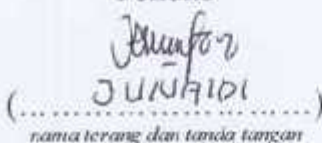 JUNAIDI
(..............................)
nama terang dan tanda tangan